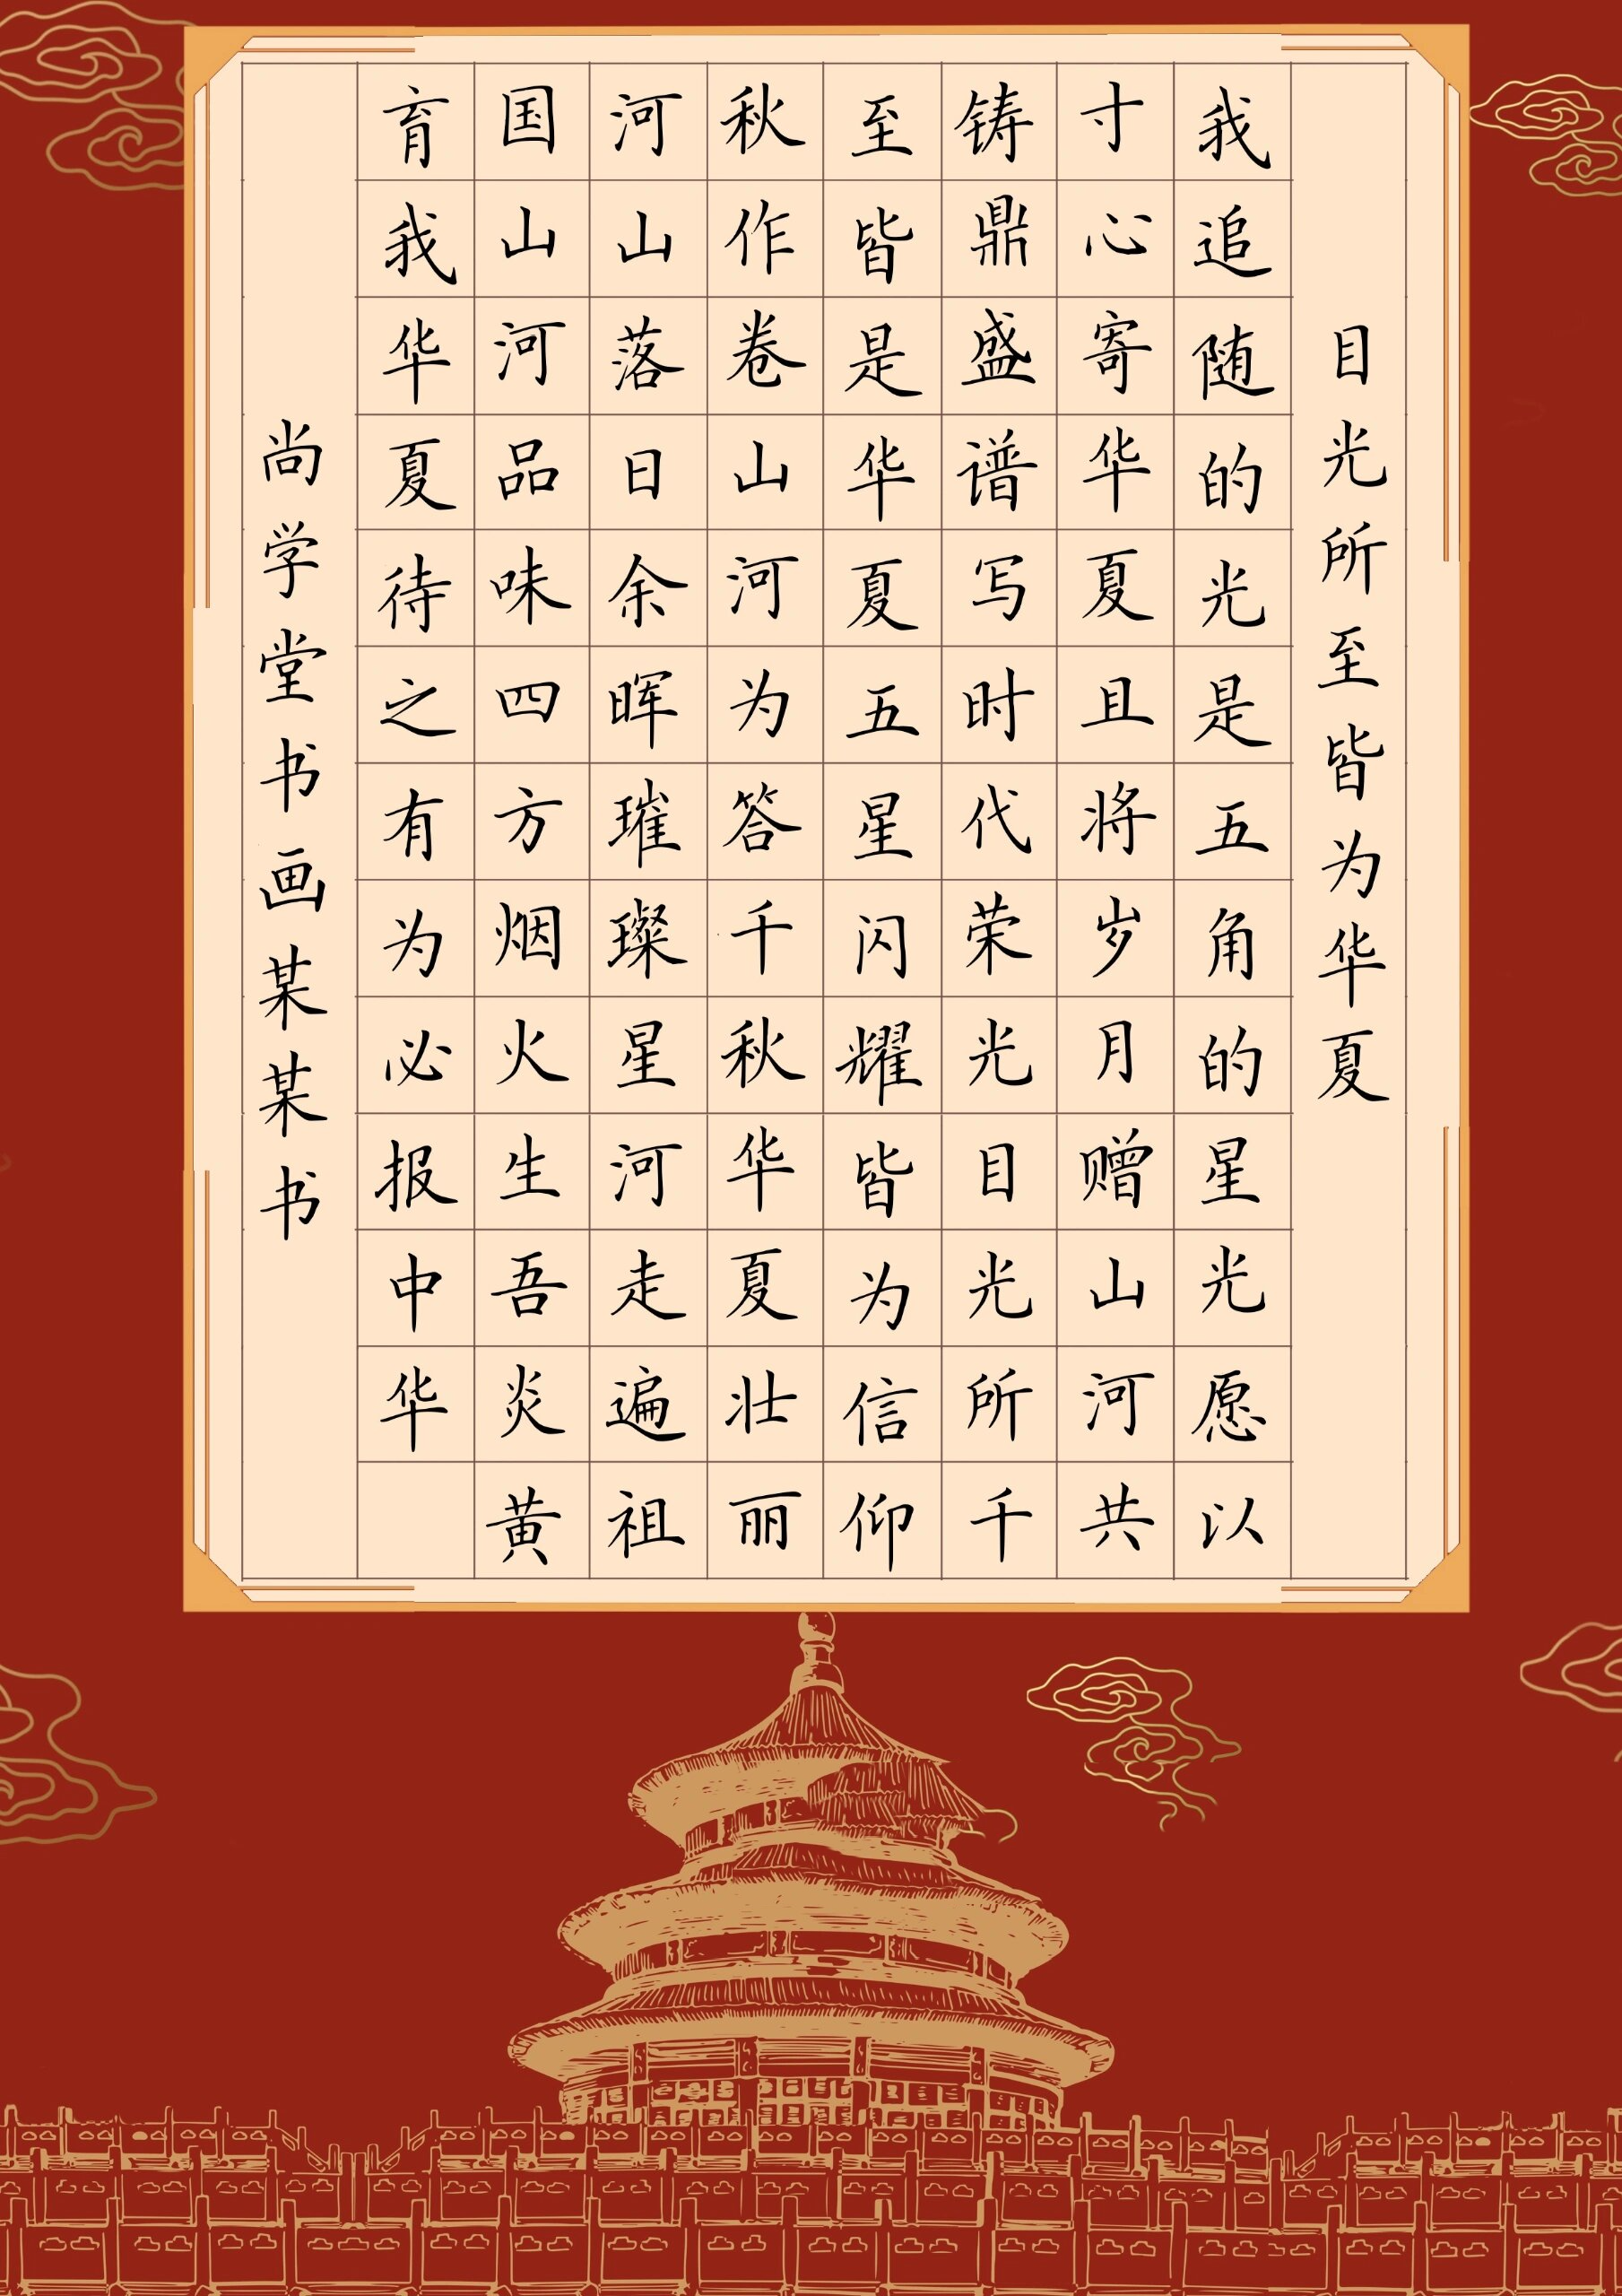 目光所至皆为华夏
我追随的光是五角的星光愿以
寸心寄华夏且将岁月赠山河共
铸鼎盛谱写时代荣光目光所千
至皆是华夏五星闪耀皆为信仰
秋作卷山河为答千秋华夏壮丽
河山落日余晖璀璨星河走遍祖
国山河品味四方烟火生吾炎黄
育我华夏待之有为必报中华
尚学堂书画某某书